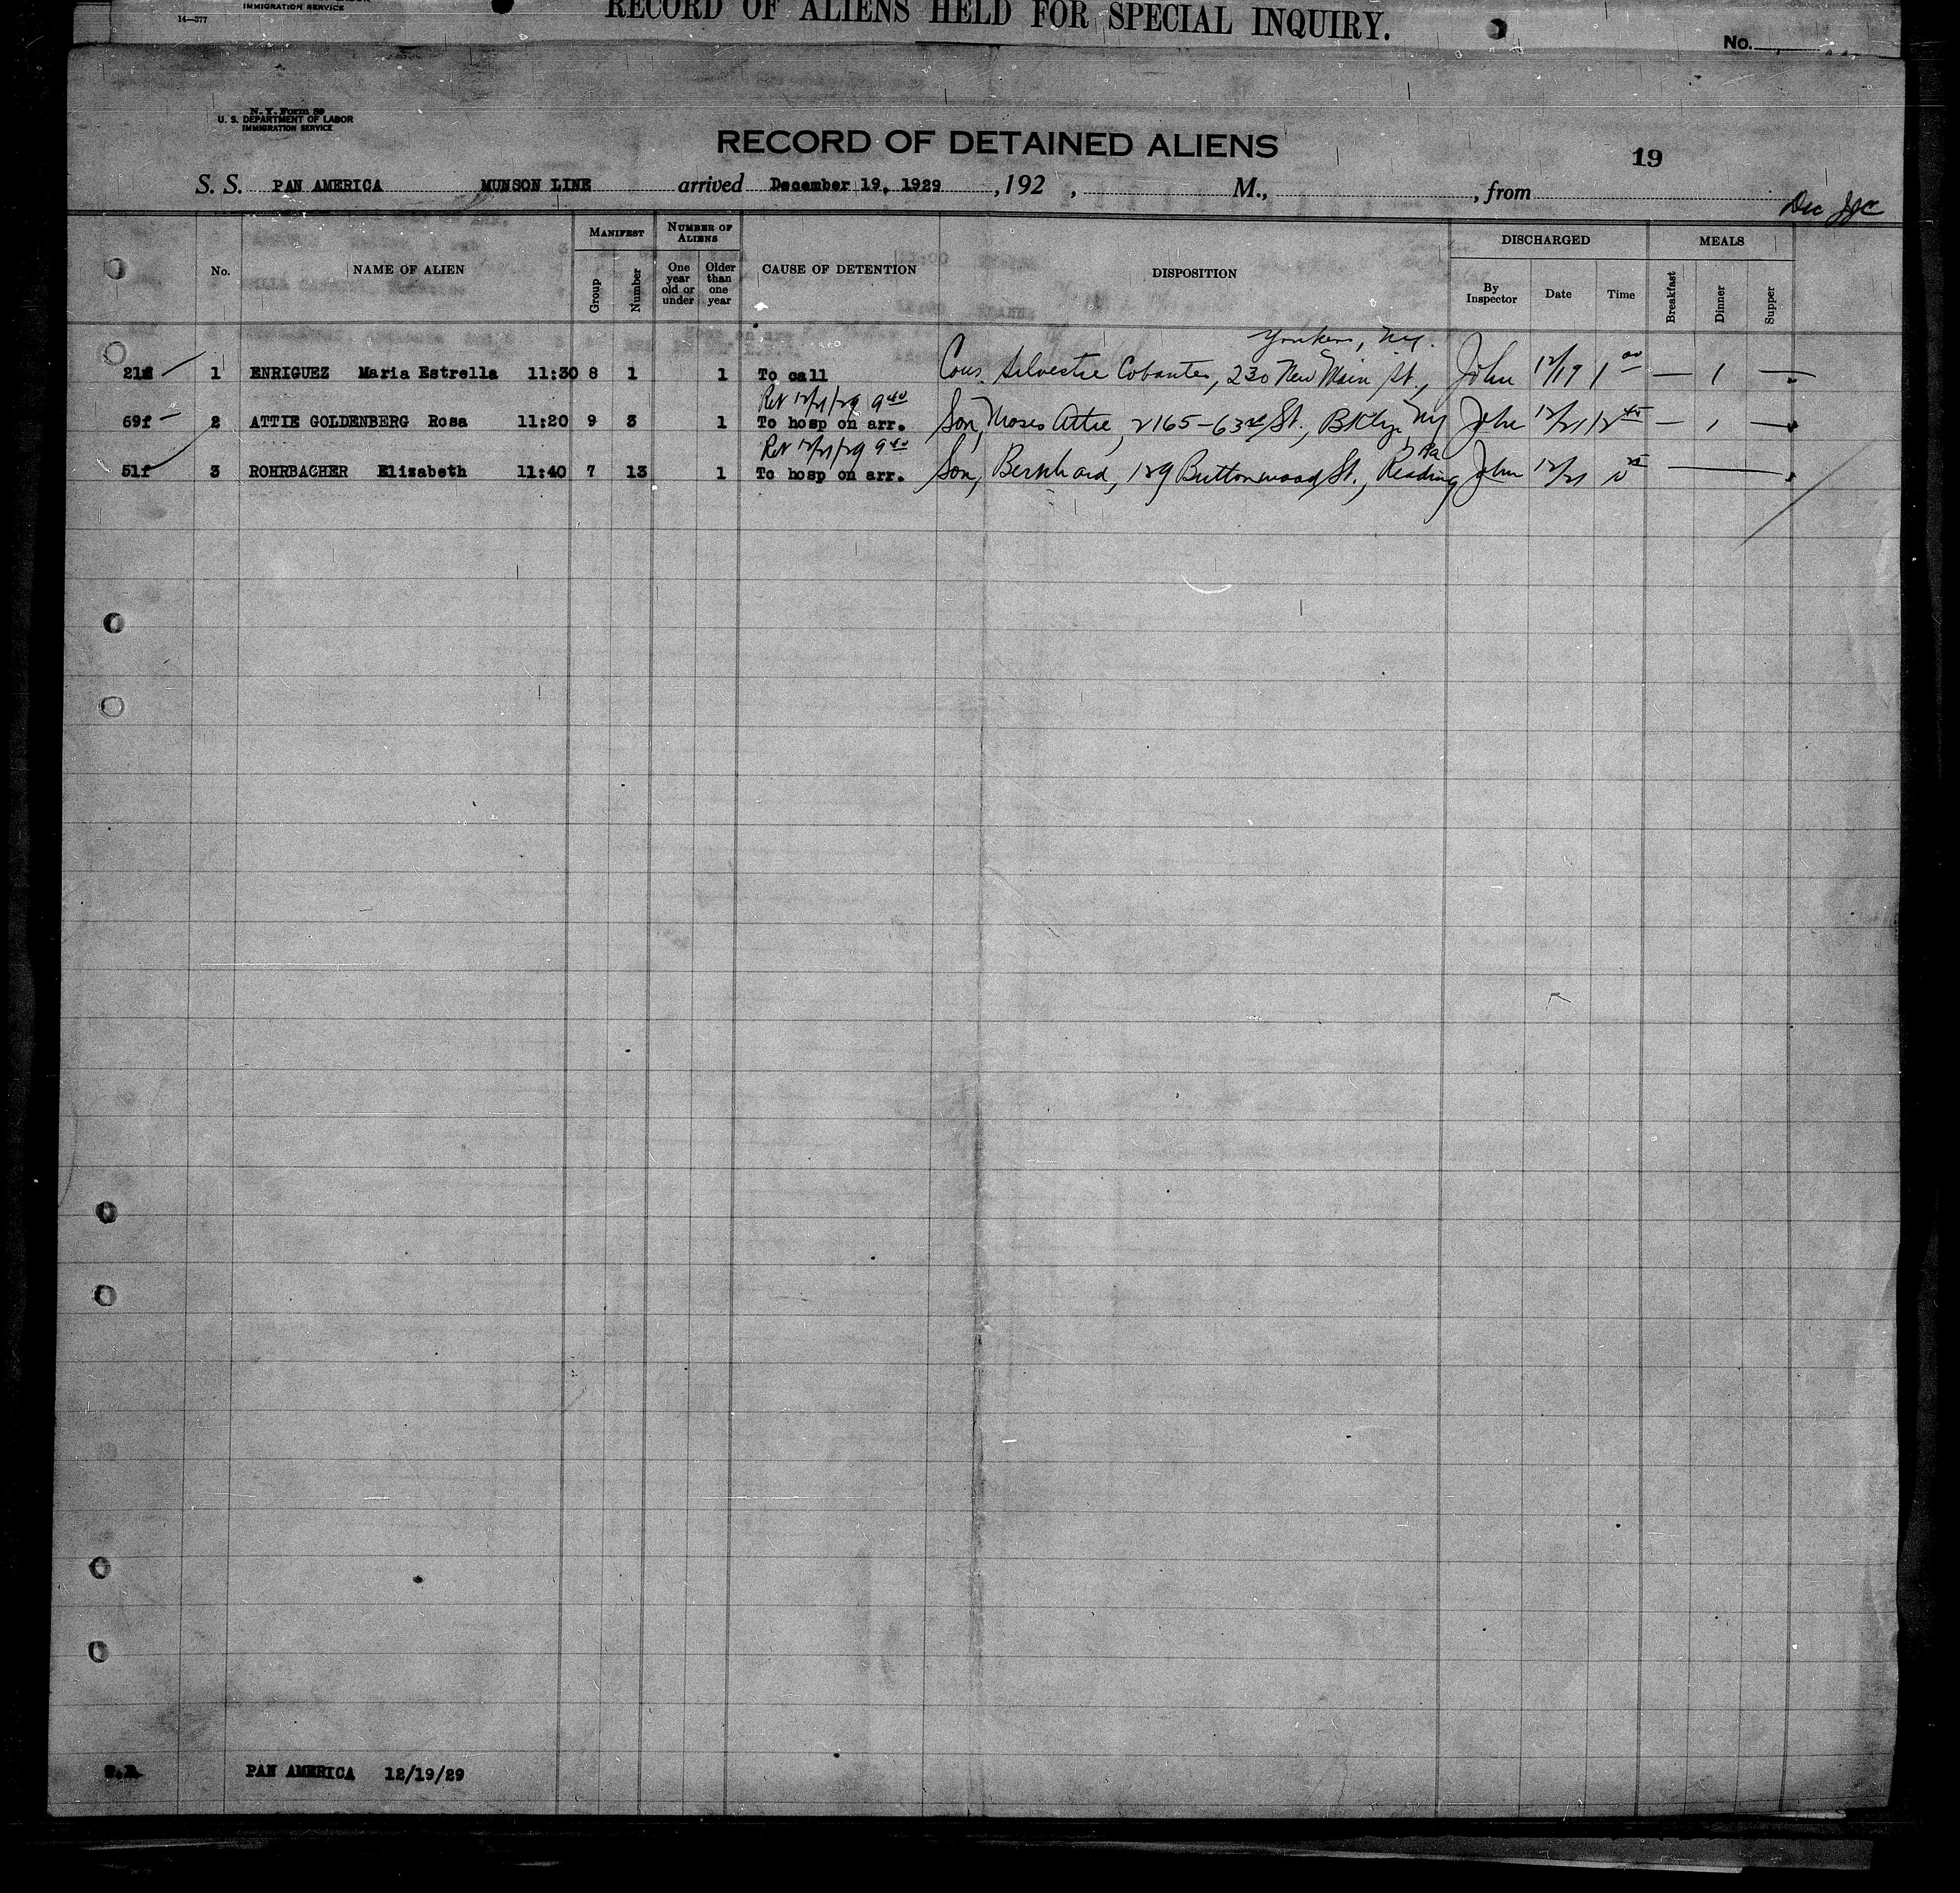 IMMIGRATION SERVICE
14—377
RECORD OF ALIENS HELD FOR SPECIAL INQUIRY.
No.
N. Y. Form 89
U. S. DEPARTMENT OF LABOR
IMMIGRATION SERVICE
RECORD OF DETAINED ALIENS
19
S. S. PAN AMERICA MUNSON LINE arrived December 19, 1929, 192 , M., , from
Dec
No. NAME OF ALIEN MANIFEST Group Number NUMBER OF ALIENS One year old or under Older than one year CAUSE OF DETENTION DISPOSITION DISCHARGED By Inspector Date Time MEALS Breakfast Dinner Supper
Yonkers, NY.
1 ENRIGUEZ Maria Estrella 11:30 8 1 1 To call Cous. Silvestre Cobantes, 230 New Main St., John 12/19 1 00 — 1 —
Ret 12/21/29 9 40
69f — 2 ATTIE GOLDENBERG Rosa 11:20 9 3 1 To hosp on arr. Son, Moses Attie, 2165-63rd St., BKlyn, NY John 12/21 12 45 — 1 —
Ret 12/21/29 9 40 Pa
51f 3 ROHRBACHER Elizabeth 11:40 7 13 1 To hosp on arr. Son, Bernhard, 129 Buttonwood St., Reading John 12/21
PAN AMERICA 12/19/29